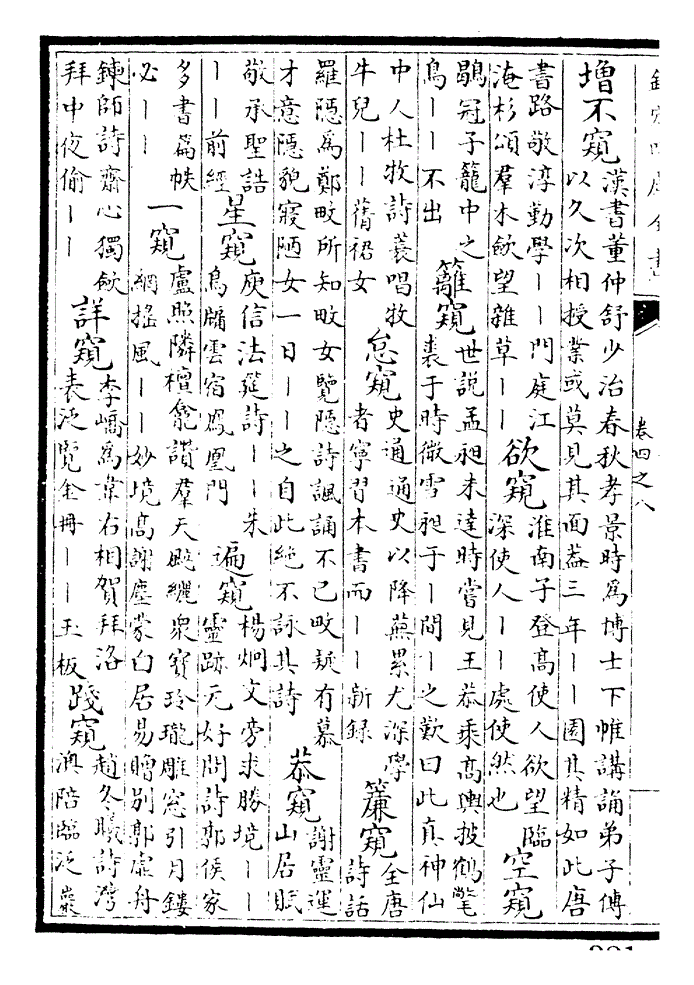 卷四之八
增不窺漢書董仲舒少治春秋孝景時為博士下帷講誦弟子傳
以久次相授業或莫見其面蓋三年丨丨園其精如此唐
書路敬淳勤學丨丨門庭江
淹杉頌羣木歛望雜草丨丨
欲窺淮南子登高使人欲望臨
深使人丨丨處使然也
空窺
鶡冠子籠中之
鳥丨丨不出
籬窺世説孟昶未達時嘗見王恭乘髙輿披鶴氅
裘于時微雪昶于丨間丨之歎曰此真神仙
中人杜牧詩蓑唱牧
牛兒丨丨蒨裙女
怠窺史通通史以降蕪累尤深學
者寧習本書而丨丨新録
簾窺全唐
詩話
羅隠為鄭畋所知畋女覽隠詩諷誦不已畋疑有慕
才意隠貌寢陋女一日丨丨之自此絶不詠其詩
恭窺謝靈運
山居賦
敬承聖誥
丨丨前經
星窺庾信法筵詩丨丨朱
鳥牖雲宿鳳凰門
遍窺楊烱文旁求勝境丨丨
靈跡元好問詩郭侯家
多書篇帙
必丨丨
一窺盧照隣檀龕讚羣天颭纚衆寳玲瓏雕窓引月鏤
網摇風丨丨妙境髙謝塵蒙白居易贈别郭虚舟
鍊師詩齋心獨歛
拜中夜偷丨丨
詳窺李嶠為韋右相賀拜洛
表泛覽金冊丨丨玉板
踐窺趙冬曦詩灣
澳陪臨泛巖